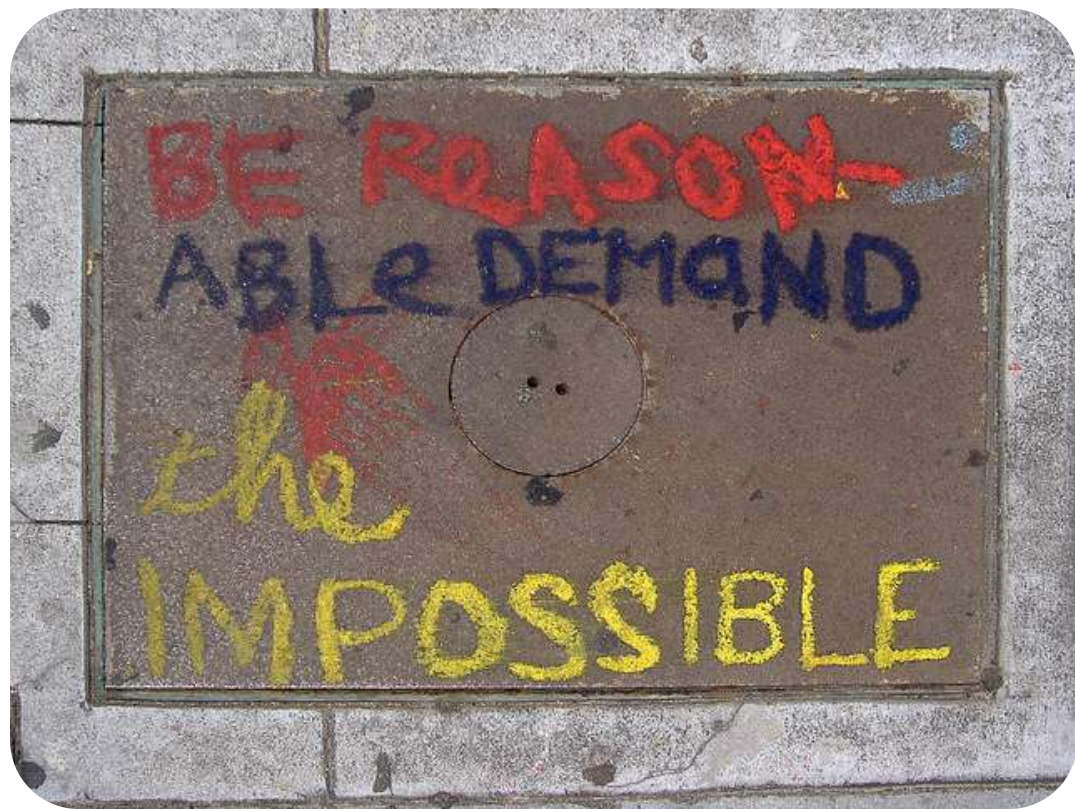 BE ReASON-
ABLe DEMaND
the
IMPOSSIBLE